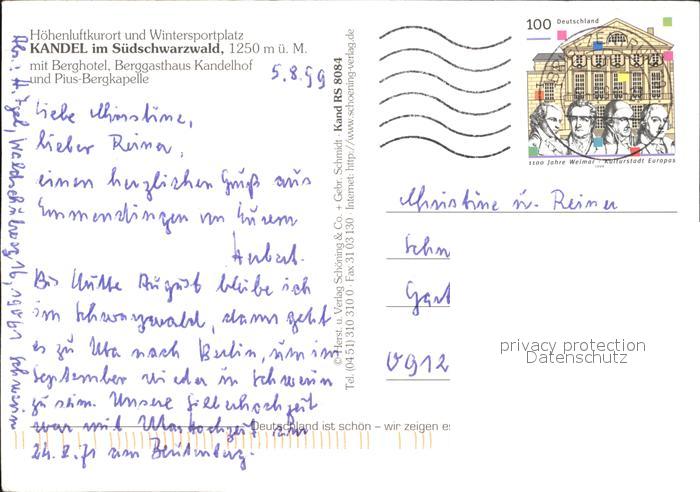 Höhenluftkurort und Wintersportplatz
KANDEL im Südschwarzwald, 1250 m ü. M.
mit Berghotel, Berggasthaus Kandelhof
und Pius-Bergkapelle
5.8.99
Liebe Christine,
lieber Reiner,
einen herzlichen Gruß aus
Emmendingen von Eurem
Herbert.
Bis Mitte August bleibe ich
im Schwarzwald, dann geht
es zu Uta nach Berlin, um im
September wieder in Schwerin
zu sein. Unsere Silberhochzeit
war mit
24. am
Schwerin
© Herst. u. Verlag Schöning & Co. + Gebr. Schmidt · Kand RS 8084
Tel. (04 51) 310 310 0 · Fax 31 03 130 · Internet: http://www.schoening-verlag.de
100 Deutschland
1100 Jahre Weimar - Kulturstadt Europas
1999
Christine u. Reiner
Schm
Gart
0912
privacy protection
Datenschutz
Deutschland ist schön – wir zeigen es